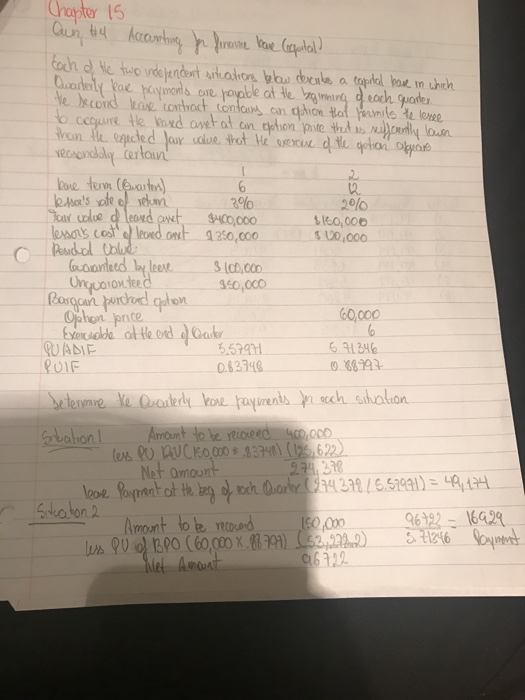 Chapter 15
Quiz #4 Accounting for finance lease (capital)
Each of the two independent situations below describes a capital lease in which
Quarterly lease payments are payable at the beginning of each quarter.
the second lease contract contains an option that permits the lessee
to acquire the leased asset at an option price that is sufficiently lower
than the expected fair value that the exercise of the option appears
reasonably certain
1 2
lease term (Quarters) 6 12
lessor's rate of return 3% 2%
Fair value of leased asset $400,000 $150,000
lessor's cost of leased asset $350,000 $120,000
Residual Value:
Guaranteed by lessee $100,000
Unguaranteed $50,000
Bargain purchase option
Option price 60,000
Exercisable at the end of Quarter 6
PVADIF 5.57971 5.71346
PVIF 0.83748 0.88797
Determine the Quarterly lease payments for each situation
Situation 1 Amount to be recovered 400,000
less PV (150,000 × .83748) (125,622)
Net amount 274,378
lease Payment at the beg of each Quarter (274378 / 5.57971) = 49,174
Situation 2
Amount to be recovered 150,000 96722 = 16929
less PV of BPO (60,000 × .88797) (53,278.2) 5.71346 Payment
Net Amount 96722